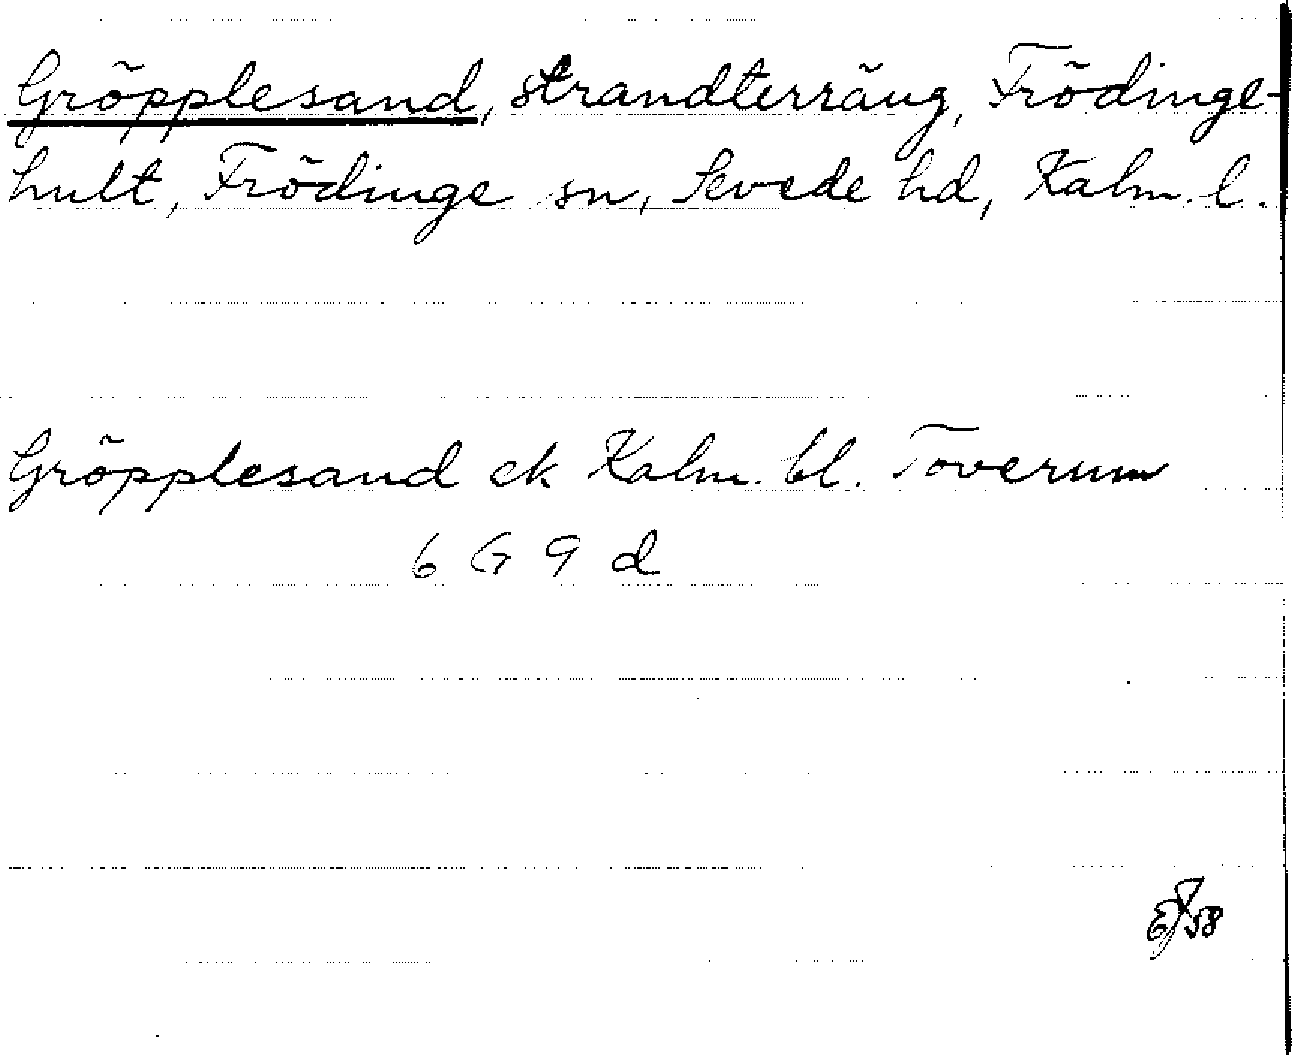 Gröpplesand, strandterräng, Frödinge-
hult, Frödinge sn, Sevede hd, Kalm. l.
Gröpplesand ek Kalm. bl. Toverum
6 G 9 d
58